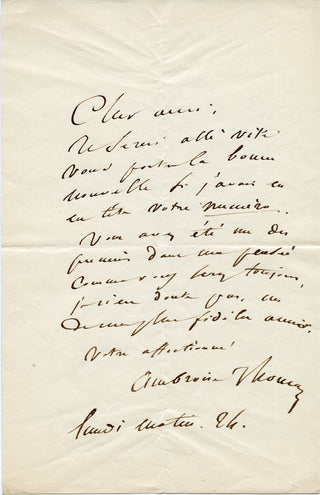 Cher ami,
Je serais allé vite
vous porter la bonne
nouvelle si j'avais eu
en tête votre numéro.
Vous avez été un des
premiers dans ma pensée
comme vous serez toujours,
je n'en doute pas, un
de mes plus fidèles amis.
Votre affectionné
Ambroise Thomas
lundi matin. 24.